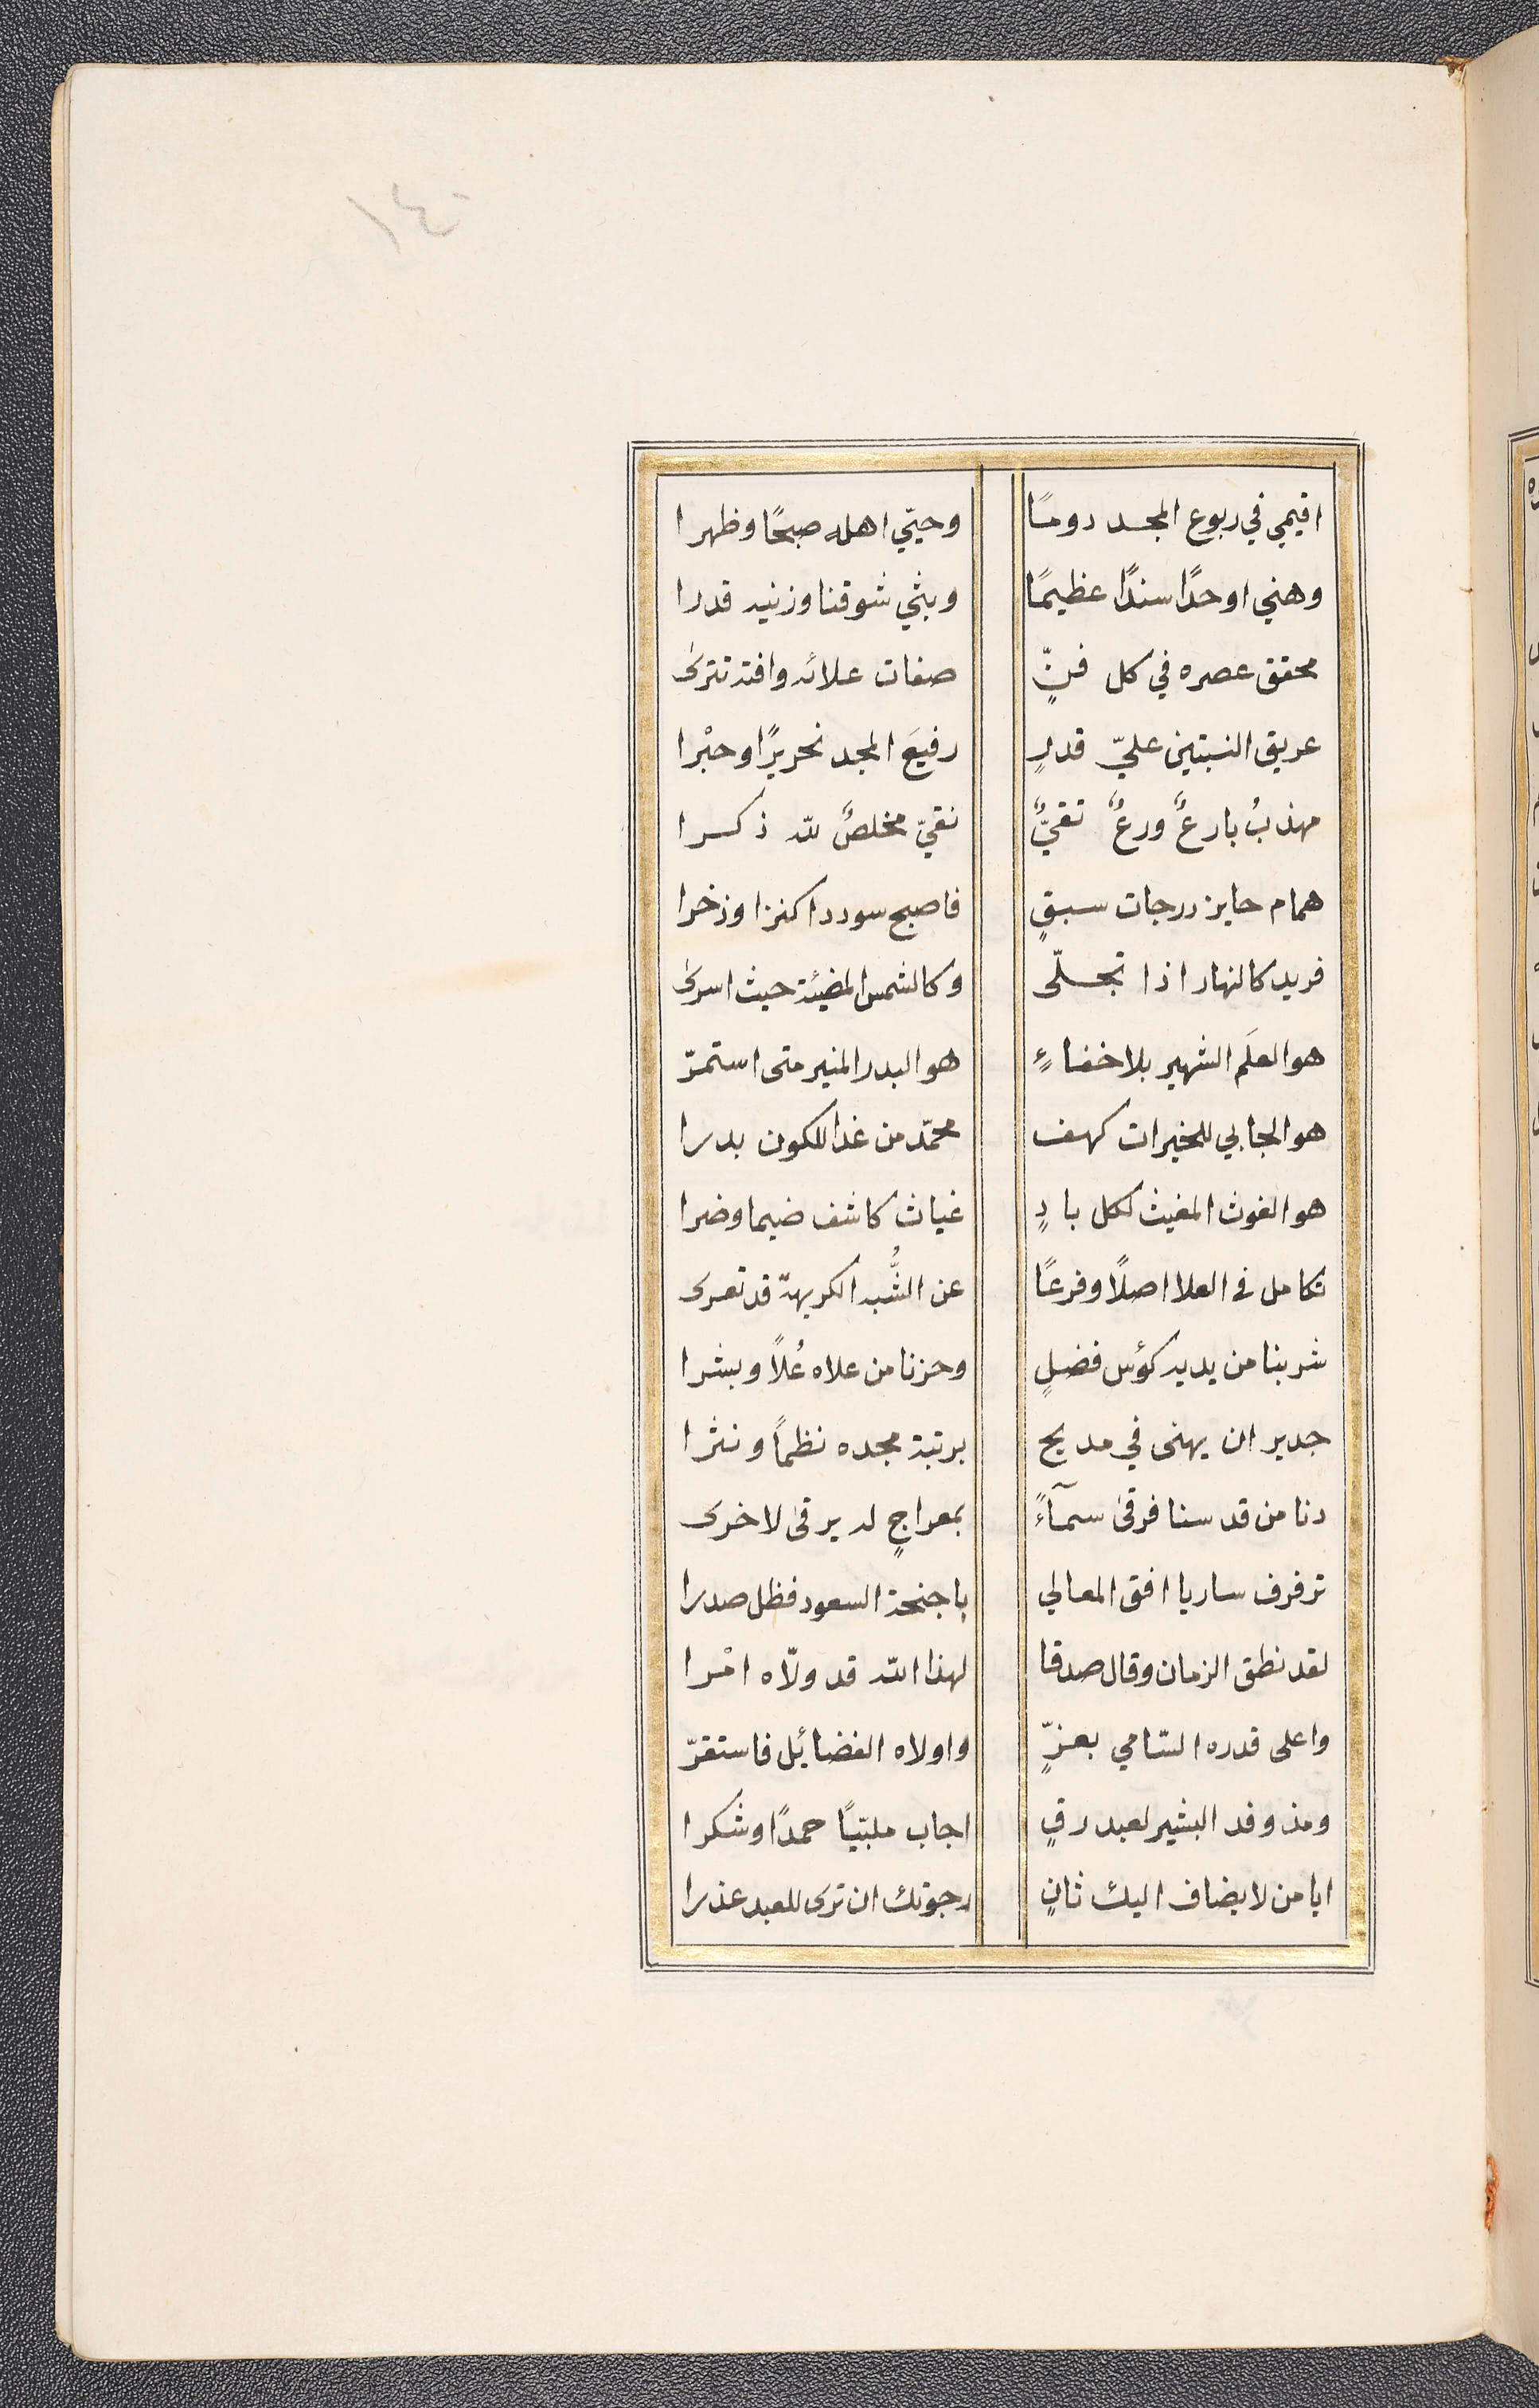 ١٤٠
اقيمي في ربوع المجد دومًا وحيّي اهله صبحًا وظهرا
وهني اوحدًا سندًا عظيمًا وبثي شوقنا وزنيه قدرا
محقق عصره في كل فنٍّ صفات علائه وافته تترى
عريق النسبتين عليّ قدرٍ رفيعَ المجد نحريرًا وحبْرا
مهذبٌ بارعٌ ورعٌ تقيٌّ نقيّ مخلصٌ لله ذكرا
همام حايز درجات سبقٍ فاصبح سوددا كنزا وذخرا
فريد كالنهار اذا تجلّى وكالشمس المضيئة حيث اسرى
هو العلَم الشهير بلا خفاءٍ هو البدر المنير متى استمرّ
هو الجابي للخيرات كهف محمّد من غدا للكون بدرا
هو الغوث المغيث لكل بادٍ غياث كاشف ضيما وضرا
تكامل في العلا اصلًا وفرعًا عن الشُّبه الكريهة قد تعرى
شربنا من يديه كؤس فضلٍ وحزنا من علاه عُلًا وبشرا
جدير ان يهنى في مديح برتبة مجده نظمًا ونثرا
دنا من قد سنا فرقى سمآءً بمعراجٍ له يرقى لاخرى
ترفرف ساريا افق المعالي باجنحة السعود فظل صدرا
لقد نطق الزمان وقال صدقا لهذا الله قد ولّاه امْرا
واعلى قدره السّامي بعزٍّ واولاه الفضائل فاستقرّ
ومذ وفد البشير لعبد رقٍ اجاب ملبّيًا حمدًا وشكرا
ايا من لا يضاف اليك ثانٍ رجوتك ان ترى للعبد عذرا